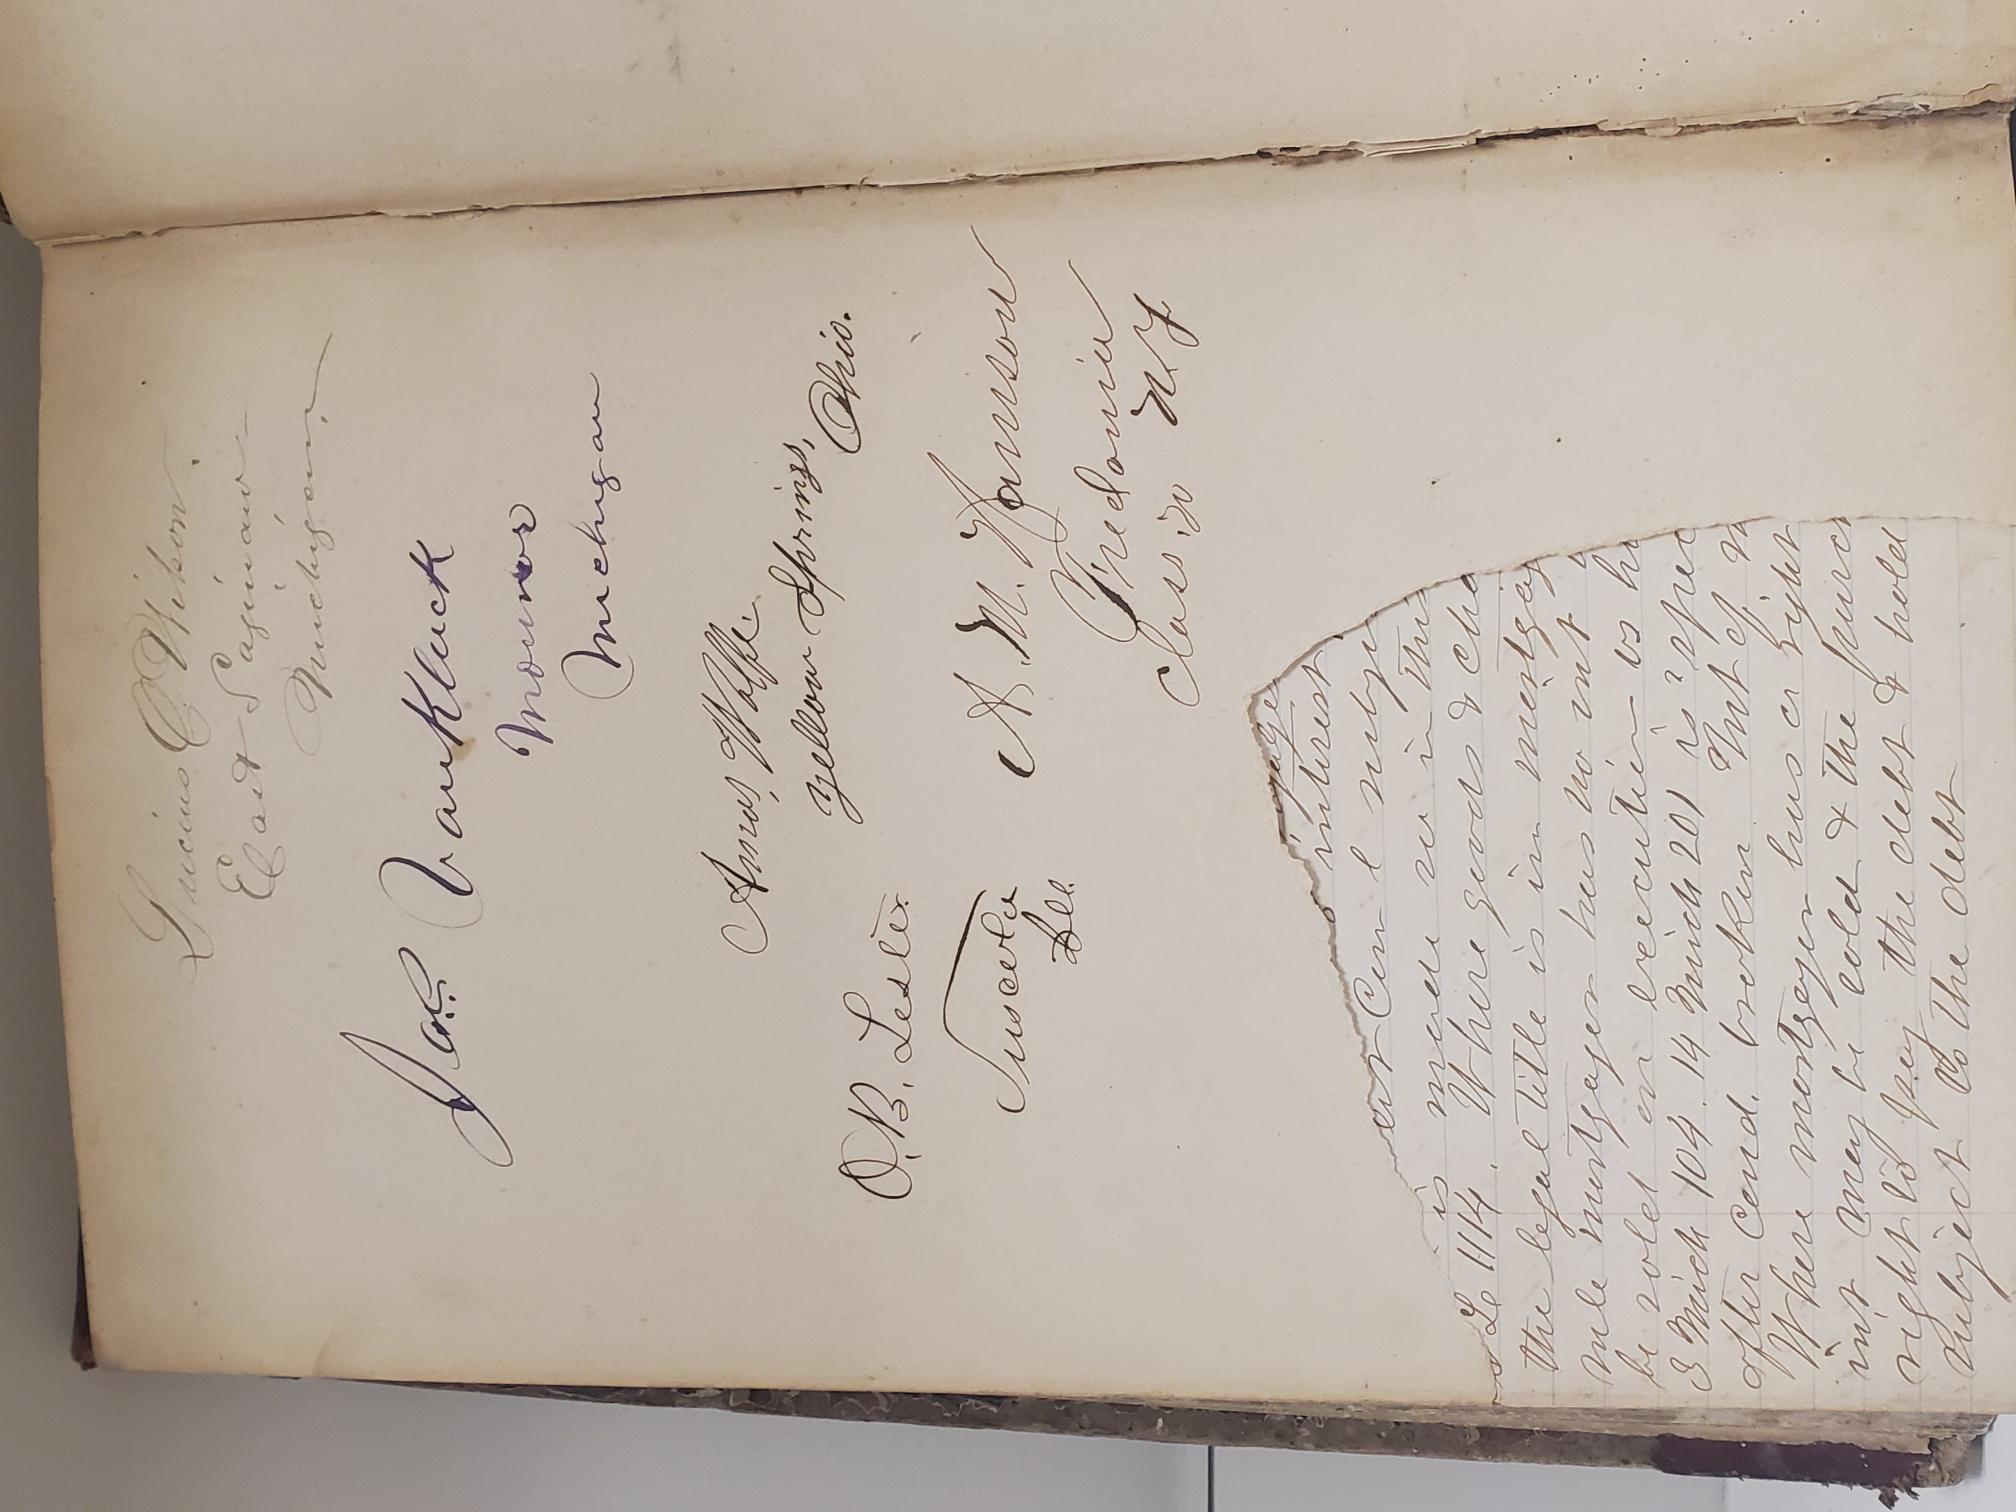 Lucius C. Wilson.
East Saginaw
Michigan,
Jas. VanKleeck
Monroe
Michigan
Amos, Wolfe.
Yellow Springs, Ohio.
O. B. Lester.
Tuscola
Ill.
A. M.
Fredonia
Class '70 N.Y
gage
interest
Can l subje
is made so in this
114. Where goods & cha
the legal title is in mortgag
mortgager has no int
be sold on execution
3 Mich 104. 14 Mich 201 is
after cond. broken Int of
Where mortgager has a right
int may be sold & the purch
right to pay the debt & hold
subject to the debt